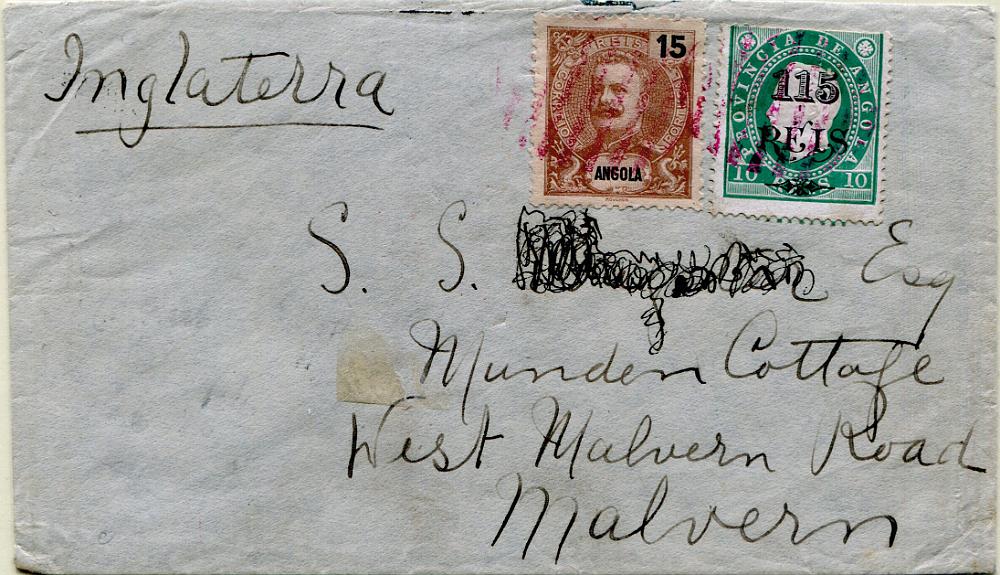 Inglaterra
CORREIOS 15
ANGOLA
PROVINCIA DE ANGOLA
115
REIS
10 REIS 10
S. S. Esq
Munden Cottage
West Malvern Road
Malvern